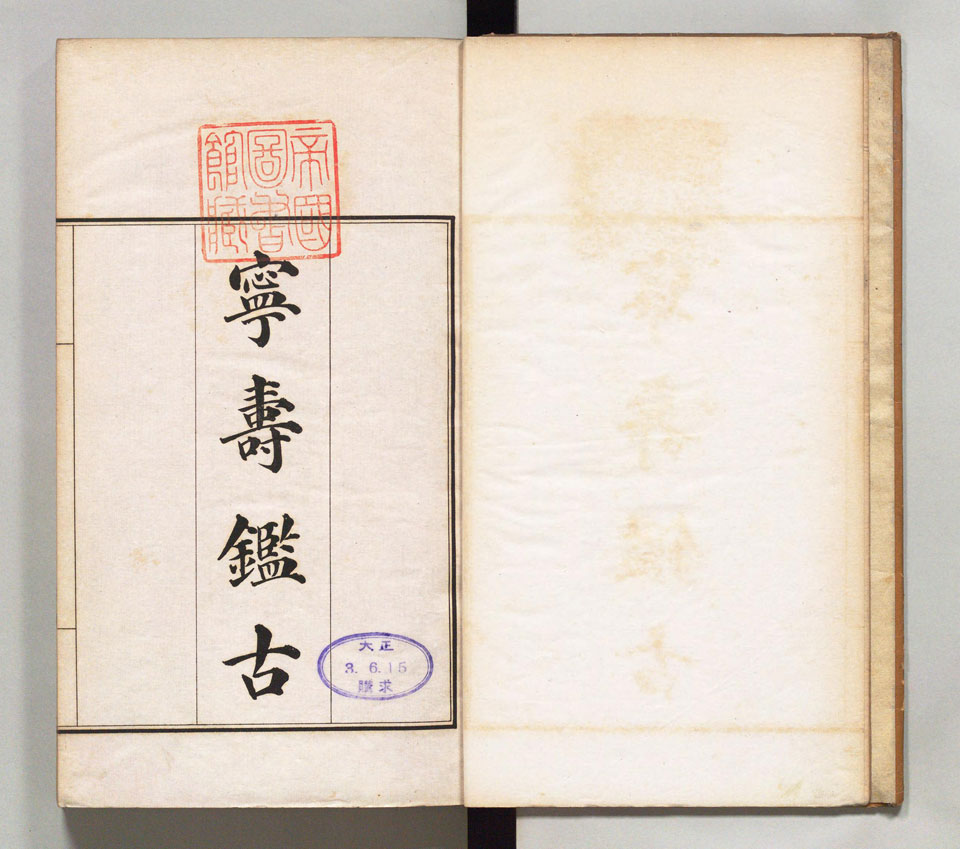 帝國
圖書
館藏
寧壽鑑古
大正
3. 6. 15
購求